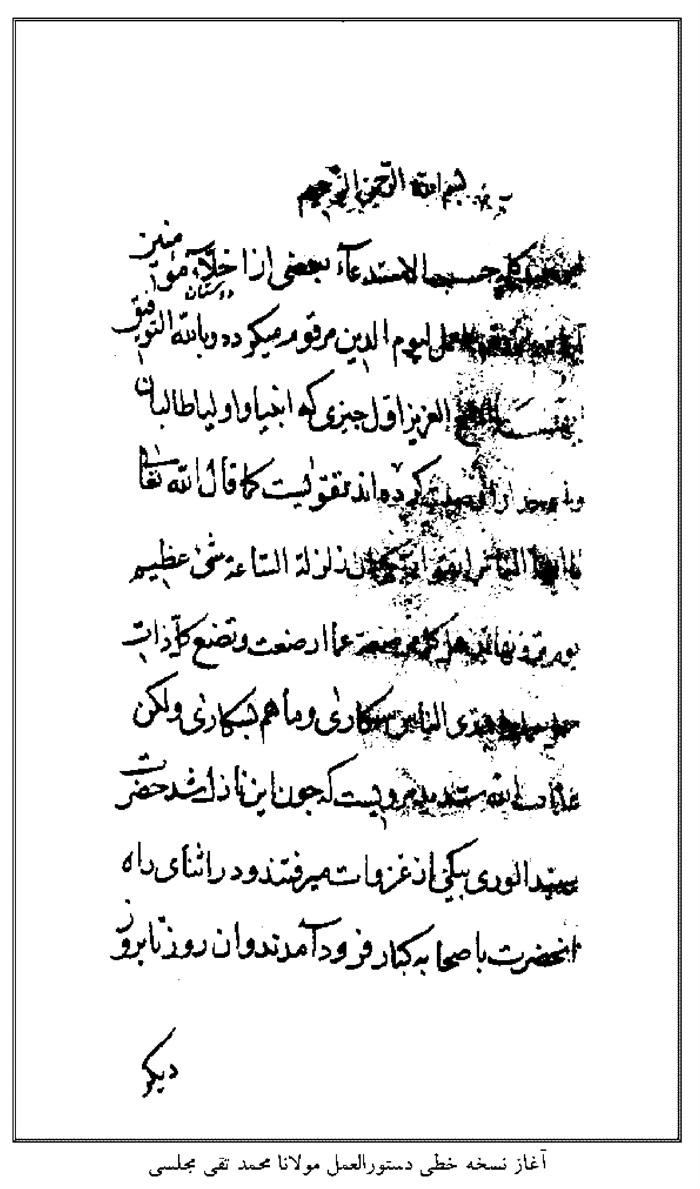 بسم الله الرحمن الرحیم
حسب الاستدعاء بعضی از اخلاّء مؤمنین
دوستان
لیوم الدین مرقوم میکردد و بالله التوفیق
العزیز اول چیزی که انبیا و اولیا طالبان
کرده اند تقویست کما قال الله تعالی
یا ایها الناس اتقوا ربکم ان زلزلة الساعة شیء عظیم
یوم ترونها تذهل کل مرضعة عما ارضعت و تضع کل ذات
حملها و تری الناس سکاری و ما هم بسکاری ولکن
عذاب الله شدید مرویست که چون این نازل شد حضرت
سید الوری بیکی از غزوات میرفتند و در اثنای راه
انحضرت با صحابه کبار فرود آمدند و ان روز تا بروز
دیکر
آغاز نسخه خطی دستورالعمل مولانا محمد تقی مجلسی